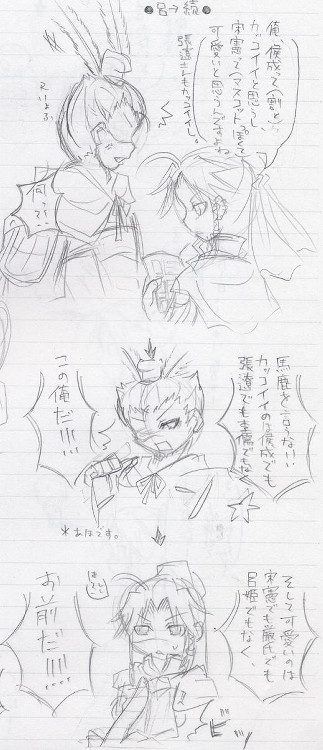 ●呂→続●
俺、侯成って(割と)
カッコイイと思うし、
宋憲って(マスコットっぽくて
可愛いと思うんですよね
張遼さんもカッコイイし。
りょふ
何っ?!
馬鹿を言うな!!
カッコイイのは侯成でも
張遼でも李儒でもなく
この俺だ!!!!
*あほです。
そして可愛いのは
宋憲でも厳氏でも
呂姫でもなく、
お前だ!!!!